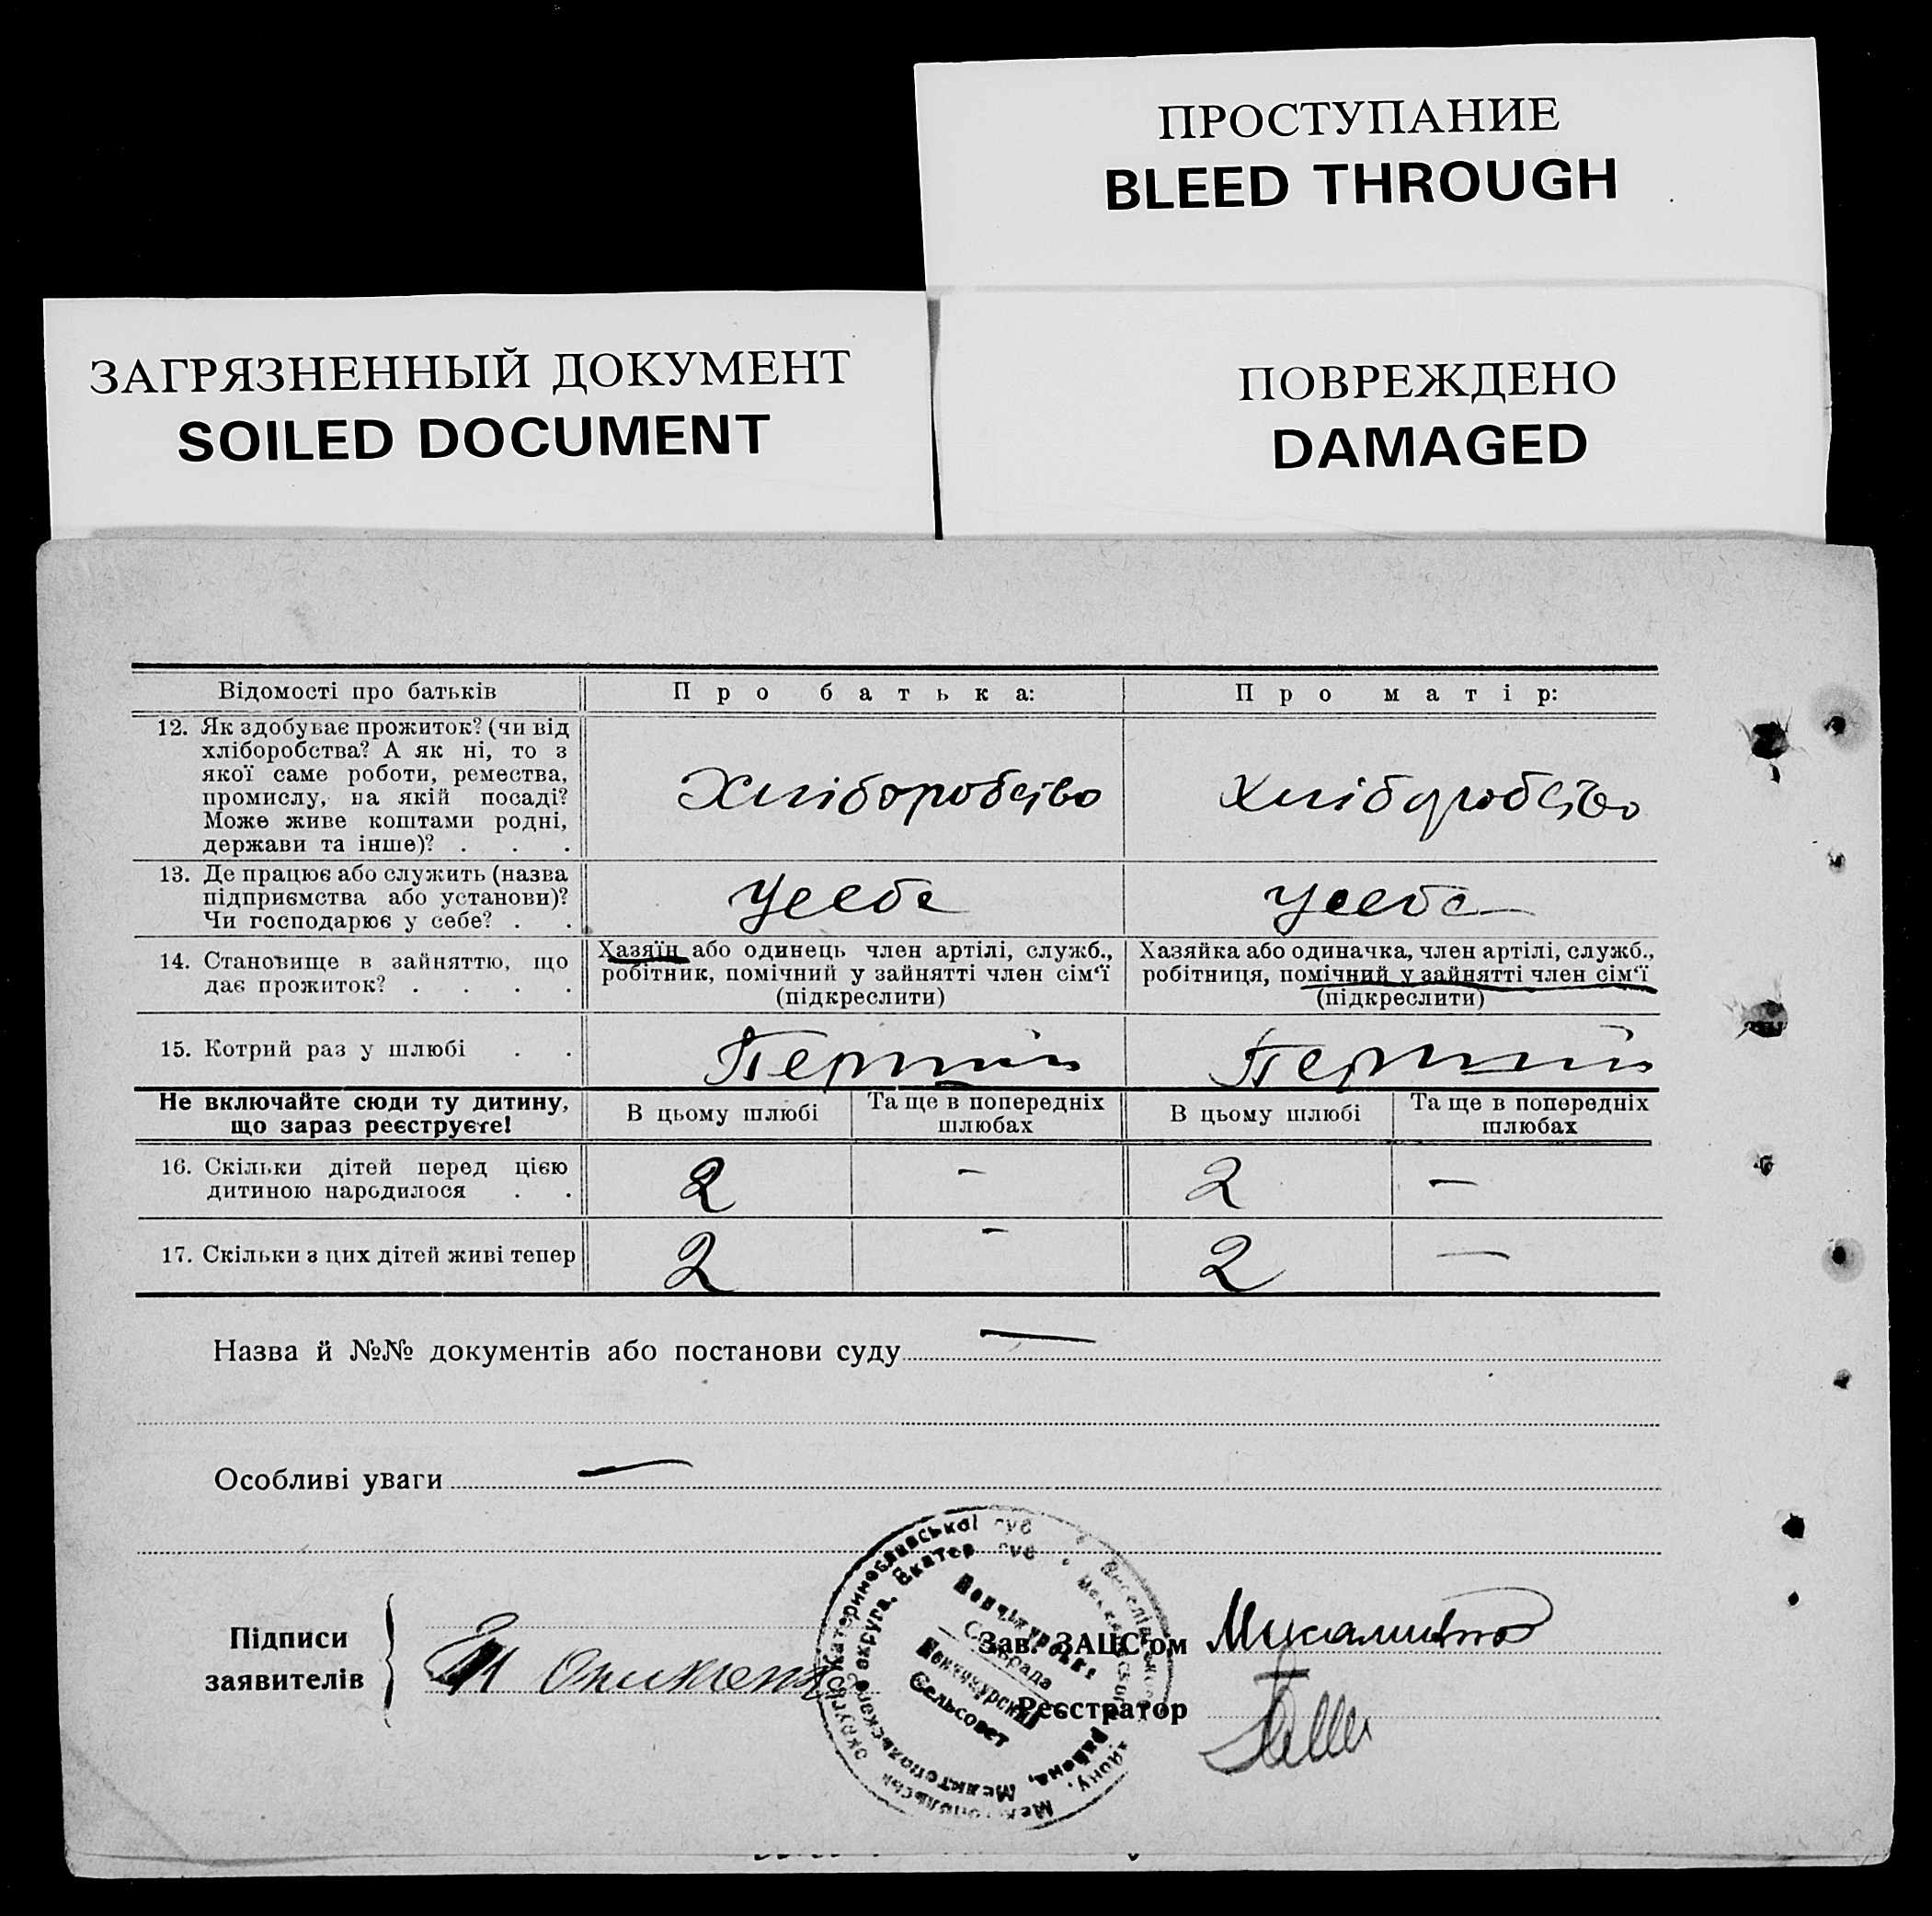 ПРОСТУПАНИЕ
BLEED THROUGH
ЗАГРЯЗНЕННЫЙ ДОКУМЕНТ
SOILED DOCUMENT
ПОВРЕЖДЕНО
DAMAGED
Відомості про батьків
Про батька:
Про матір:
12. Як здобуває прожиток? (чи від
хліборобства? А як ні, то з
якої саме роботи, ремества,
промислу, на якій посаді?
Може живе коштами родні,
держави та інше)? . . .
Хліборобство
Хліборобство
13. Де працює або служить (назва
підприємства або установи)?
Чи господарює у себе? . .
У себе
У себе
14. Становище в зайняттю, що
дає прожиток? . . . .
Хазяїн або одинець член артілі, служб.,
робітник, помічний у зайнятті член сім'ї
(підкреслити)
Хазяйка або одиначка, член артілі, служб.,
робітниця, помічний у зайнятті член сім'ї
(підкреслити)
15. Котрий раз у шлюбі . .
Перший
Перший
Не включайте сюди ту дитину,
що зараз реєструєте!
В цьому шлюбі
Та ще в попередніх
шлюбах
В цьому шлюбі
Та ще в попередніх
шлюбах
16. Скільки дітей перед цією
дитиною народилося . .
2 — 2 —
17. Скільки з цих дітей живі тепер
2 — 2 —
Назва й №№ документів або постанови суду —
Особливі уваги —
Підписи
заявителів
Зав. ЗАЦС'ом
Реєстратор
Катеринославської губ
округа, Екатер. губ
Сельсовет
района, Мелитопольского